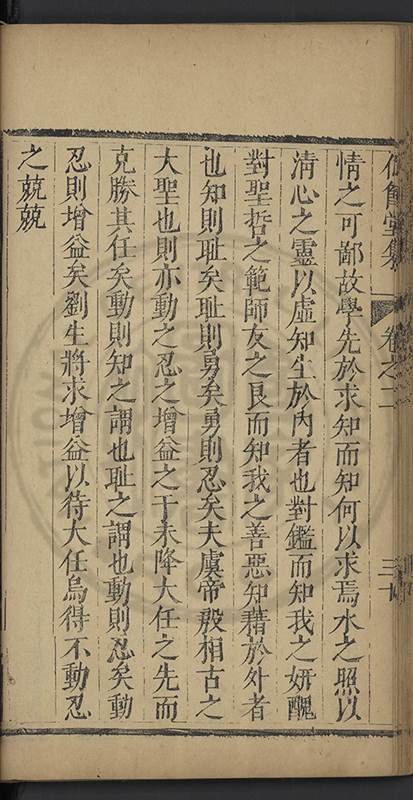 堂集 卷之二 三十
情之可鄙故學先於求知而知何以求焉水之照以
清心之靈以虛知生於內者也對鑑而知我之妍醜
對聖哲之範師友之良而知我之善惡知藉於外者
也知則耻矣耻則勇矣勇則忍矣夫虞帝殷相古之
大聖也則亦動之忍之增益之于未降大任之先而
克勝其任矣動則知之謂也耻之謂也動則忍矣動
忍則增益矣劉生將求增益以待大任烏得不動忍
之兢兢